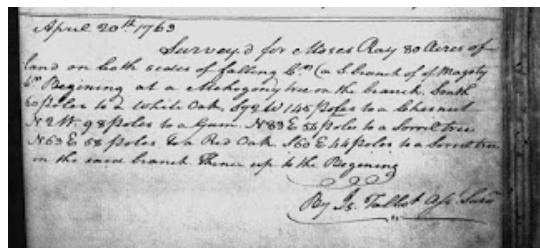 April 20th 1763
Survey'd for Moses Ray 80 Acres of
land on both sides of falling Cr. (a S. branch of of Magoty
Cr. Begining at a Mehogony tree on the branch. South
60 poles to 2 White Oak. S 78 W 145 poles to a Chesnut
N 2 W. 98 poles to a Gum. N 83 E 54 poles to a Sorrel tree
N 53 E 58 poles to a Red Oak. S 60 E 44 poles to a Sorrel tree
on the said branch thence up to the Begining
By Js. Talbot Ass. Surv